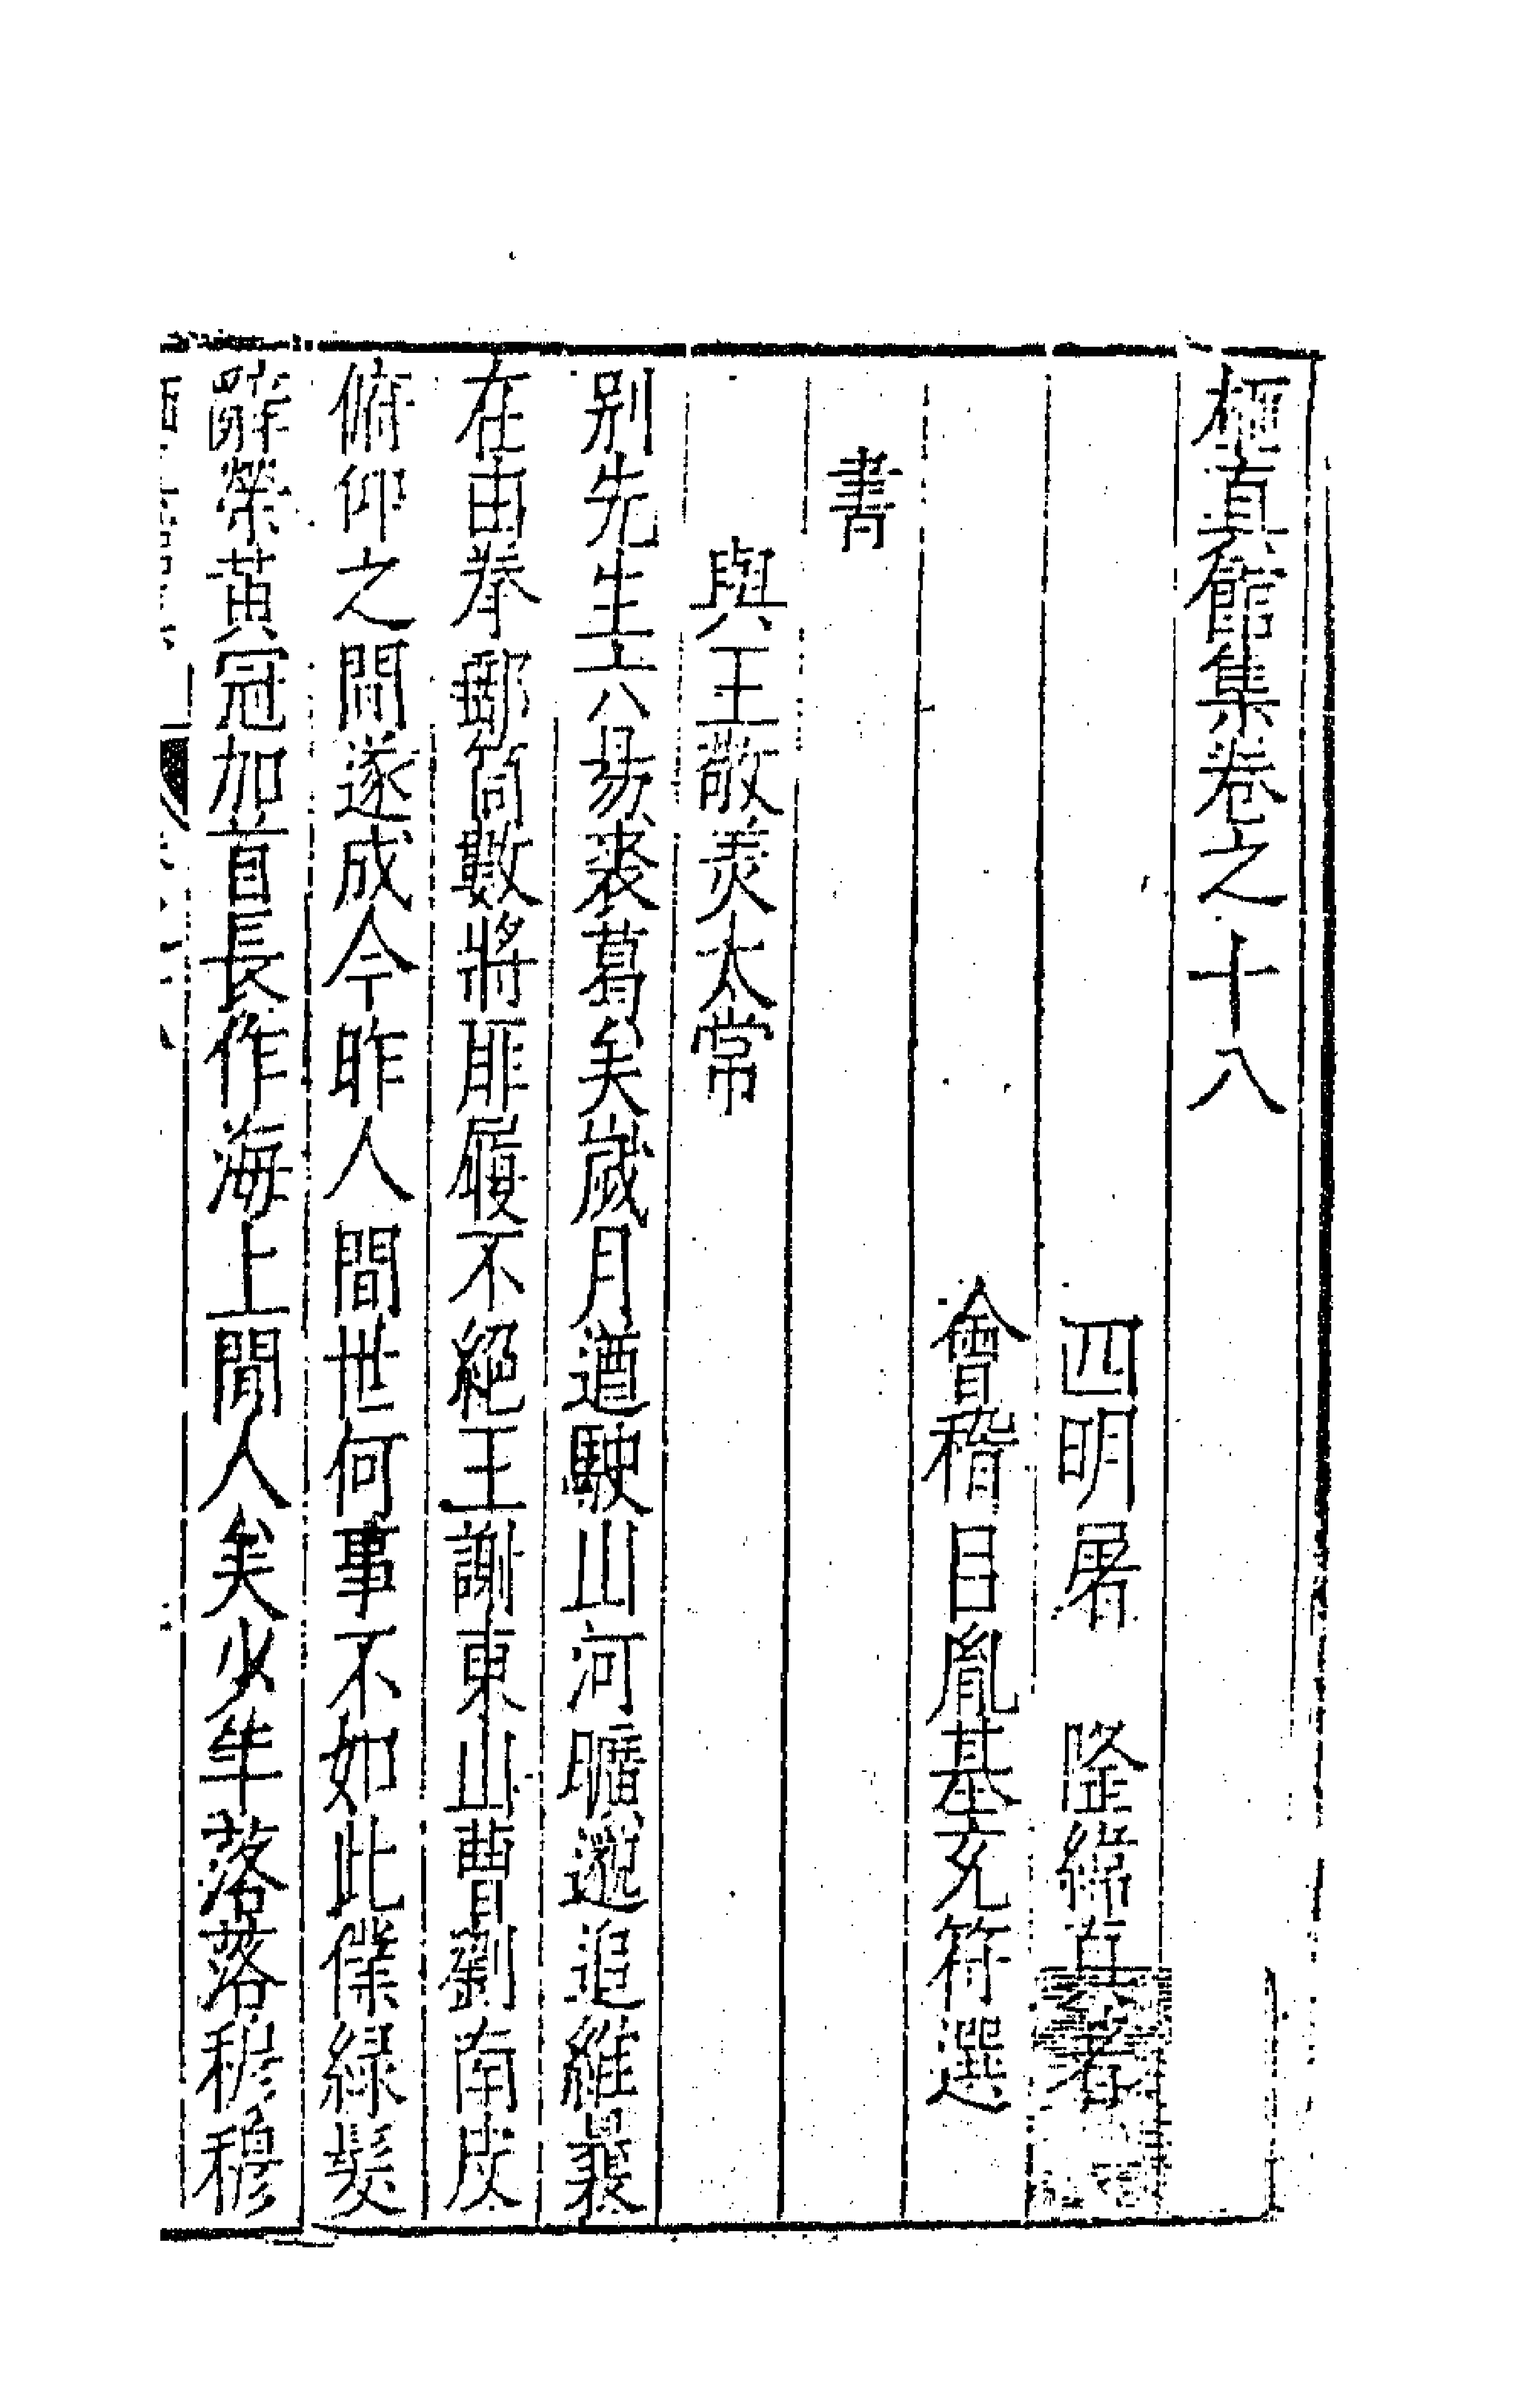 栖真館集卷之十八
四明屠　隆緯真著
會稽呂胤基玄符選
書
與王敬美太常
别先生六易裘葛矣歲月遒駛山河曠邈追維曩
在由拳郵筒數將扉履不絕王謝東山曹劉南皮
俯仰之間遂成今昨人間世何事不如此僕緑髮
辭榮黄冠加首長作海上閒人矣少年落落穆穆